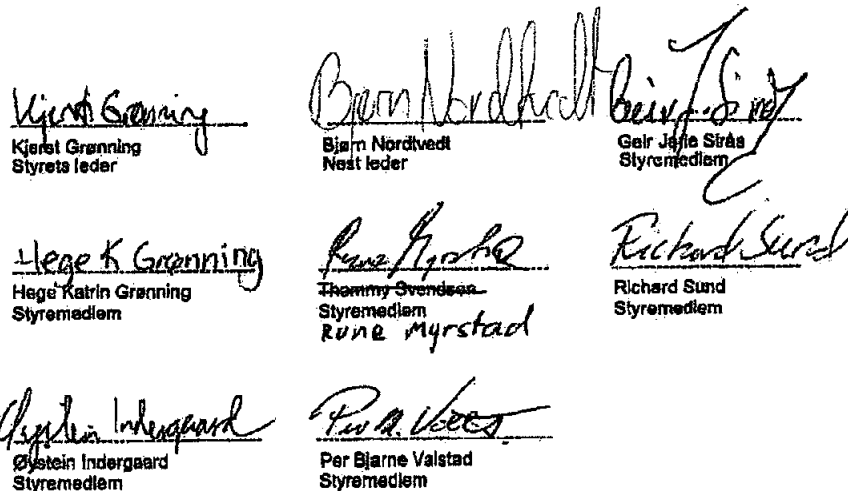 Kjersti Grønning
Kjerst Grønning
Styrets leder
Bjørn Nordtvedt
Bjørn Nordtvedt
Nest leder
Geir J. Sirås
Geir Jarle Sirås
Styremedlem
Hege K Grønning
Hege Katrin Grønning
Styremedlem
Rune Myrstad
Thommy Svendsen
Styremedlem
Rune Myrstad
Richard Sund
Richard Sund
Styremedlem
Øystein Indergaard
Øystein Indergaard
Styremedlem
Per Bjarne Valstad
Styremedlem